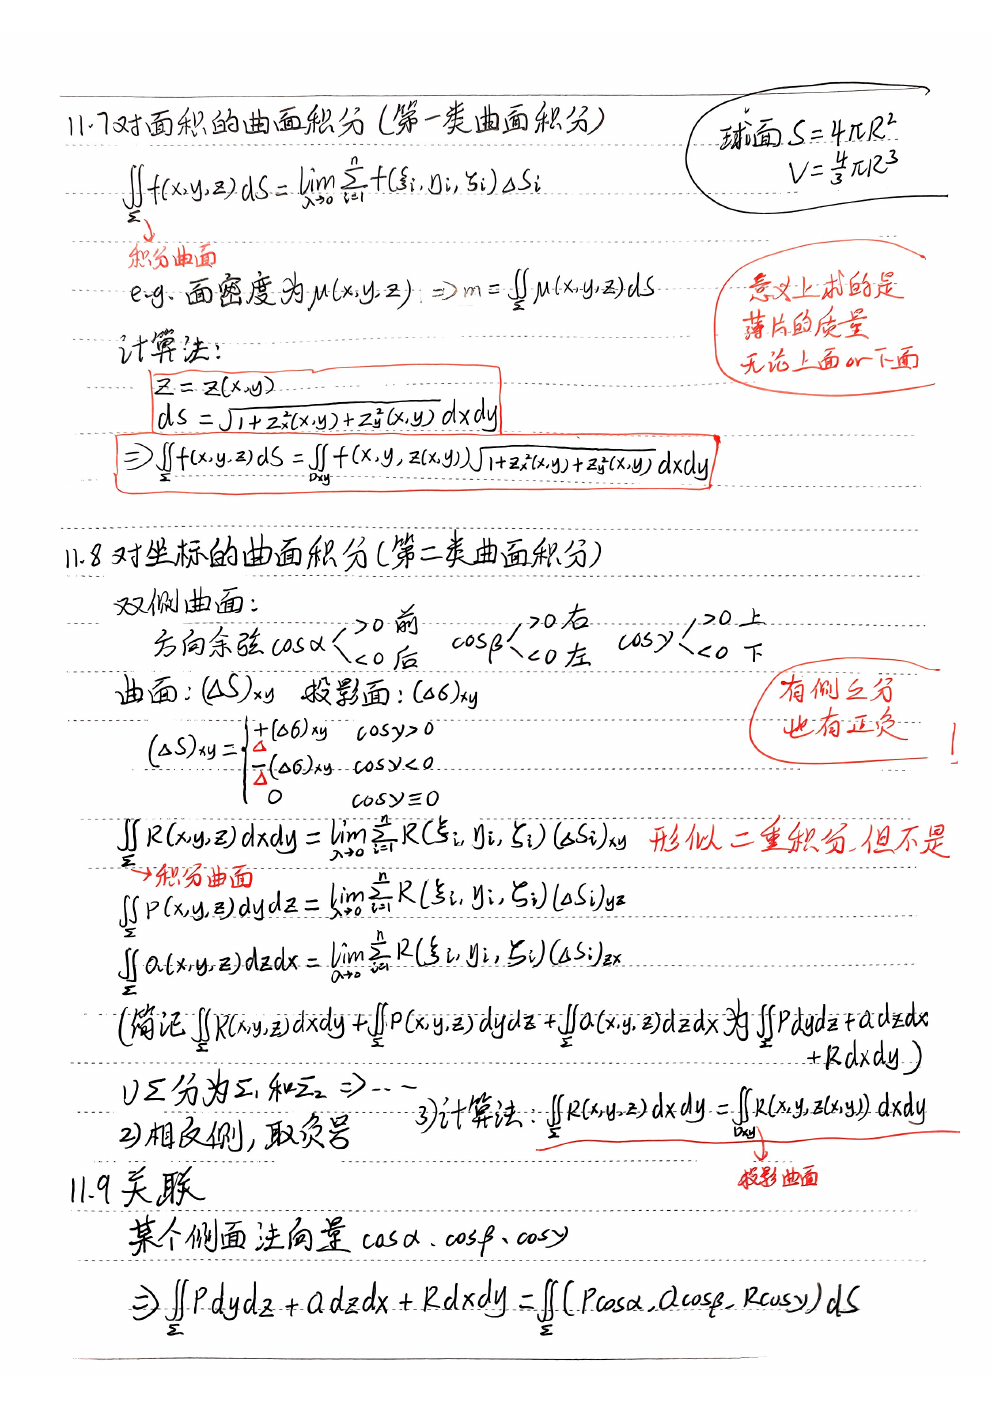 11.7 对面积的曲面积分 (第一类曲面积分)
球面 S = 4πR²
V = 4/3 πR³
∬_Σ f(x,y,z) dS = lim_{λ→0} Σ_{i=1}^{n} f(ξi, ηi, ζi) ΔSi
积分曲面
e.g. 面密度为 μ(x,y,z) ⇒ m = ∬_Σ μ(x,y,z) dS
意义上求的是
薄片的质量
无论上面 or 下面
计算法:
z = z(x,y)
dS = √(1+z_x²(x,y)+z_y²(x,y)) dxdy
⇒ ∬_Σ f(x,y,z) dS = ∬_{Dxy} f(x,y,z(x,y)) √(1+z_x²(x,y)+z_y²(x,y)) dxdy
11.8 对坐标的曲面积分 (第二类曲面积分)
双侧曲面:
方向余弦 cosα >0 前 <0 后 cosβ >0 右 <0 左 cosγ >0 上 <0 下
曲面: (ΔS)xy 投影面: (Δσ)xy
有侧之分
也有正负
!
(ΔS)xy = { +(Δσ)xy cosγ>0
−(Δσ)xy cosγ<0
0 cosγ≡0
∬_Σ R(x,y,z) dxdy = lim_{λ→0} Σ_{i=1}^{n} R(ξi, ηi, ζi) (ΔSi)xy 形似二重积分,但不是
→积分曲面
∬_Σ P(x,y,z) dydz = lim_{λ→0} Σ_{i=1}^{n} R(ξi, ηi, ζi) (ΔSi)yz
∬_Σ Q(x,y,z) dzdx = lim_{λ→0} Σ_{i=1}^{n} R(ξi, ηi, ζi) (ΔSi)zx
(简记 ∬_Σ R(x,y,z) dxdy + ∬_Σ P(x,y,z) dydz + ∬_Σ Q(x,y,z) dzdx 为 ∬_Σ Pdydz + Qdzdx
+ Rdxdy)
1) Σ分为Σ₁和Σ₂ ⇒ ...
2) 相反侧, 取负号
3) 计算法: ∬_Σ R(x,y,z) dxdy = ∬_{Dxy} R(x,y,z(x,y)) dxdy
投影曲面
11.9 关联
某个侧面 法向量 cosα、cosβ、cosγ
⇒ ∬_Σ Pdydz + Qdzdx + Rdxdy = ∬_Σ (Pcosα, Qcosβ, Rcosγ) dS